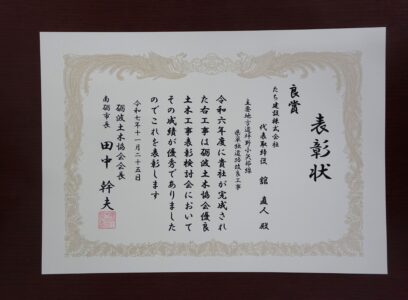 表彰状
良賞
たち建設株式会社
代表取締役 舘 直人 殿
主要地方道坪野小矢部線
県単独道路改良工事
令和六年度に貴社が完成され
た右工事は砺波土木協会優良
土木工事表彰検討会において
その成績が優秀でありました
のでこれを表彰します
令和七年十一月二十五日
砺波土木協会会長
南砺市長 田中幹夫